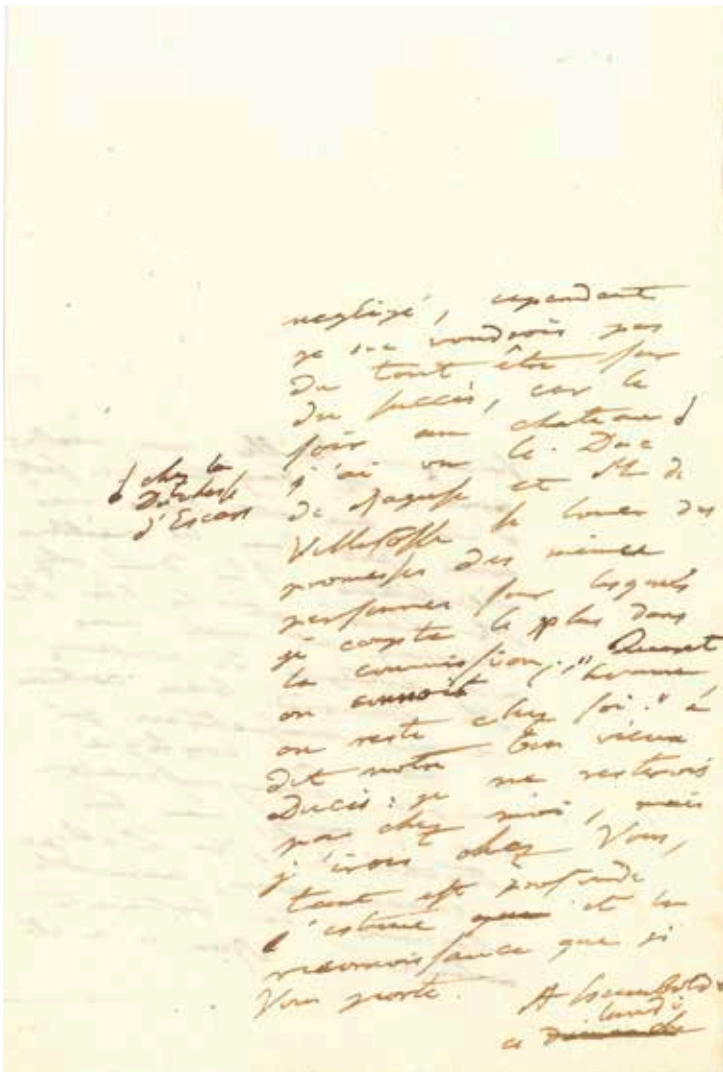 negligé, cependant
je ne voudrois pas
du tout être sur
du succès, car le
soir au chateau
j'ai vu le Duc
de Raguse et Mr de
Villefosse se louer des
promesses des mêmes
personnes sur lesquels
je compte le plus dans
la commission. "Quand
on connoit l'homme
on reste chez soi." a
dit notre bon vieux
Ducis: je ne resterois
pas chez moi, mais
j'irois chez Vous,
tant est profonde
l'estime et la
reconnoissance que je
Vous porte.
A Humboldt
lundi
ce dimanche
chez la
Duchesse
d'Escars